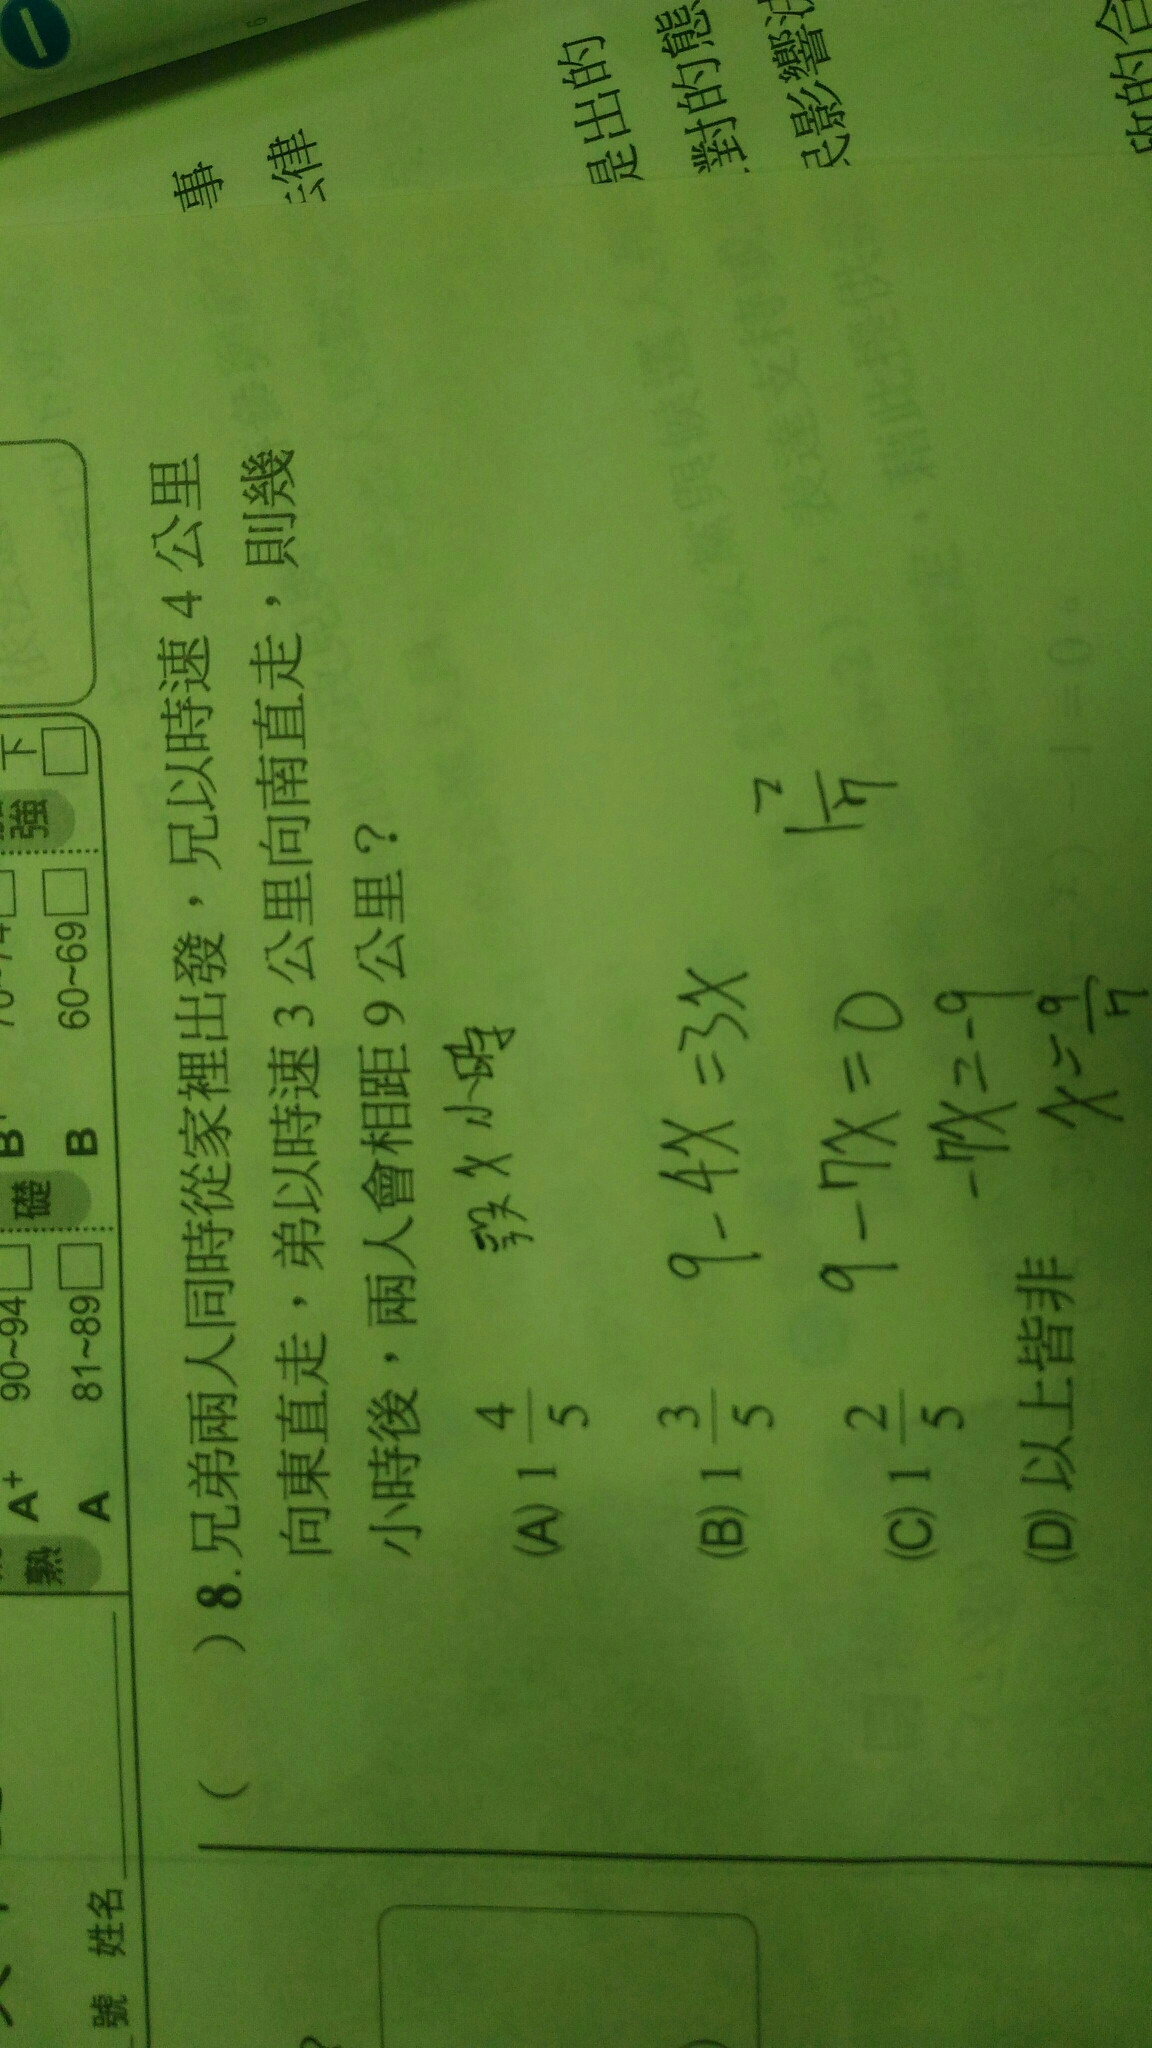 事
律
是出的
對的態
影響
的合
強
下
60~69
礎
B
90~94
81~89
熟
A+
A
號 姓名
( ) 8. 兄弟兩人同時從家裡出發，兄以時速 4 公里
向東直走，弟以時速 3 公里向南直走，則幾
小時後，兩人會相距 9 公里？
(A) 1 4/5
(B) 1 3/5
(C) 1 2/5
(D) 以上皆非
設 x 小時
9 - 4x = 3x
9 - 7x = 0
-7x = -9
x = 9/7
1 2/7